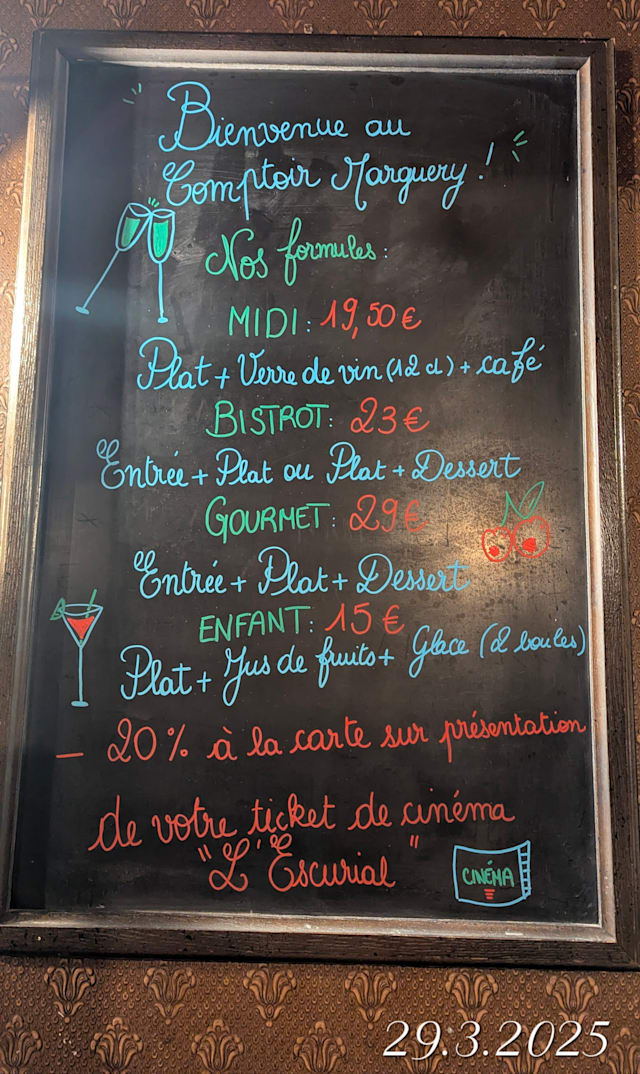 Bienvenue au
Comptoir Marguery !
Nos formules :
MIDI : 19,50 €
Plat + Verre de vin (12 cl) + café
BISTROT : 23 €
Entrée + Plat ou Plat + Dessert
GOURMET : 29 €
Entrée + Plat + Dessert
ENFANT : 15 €
Plat + Jus de fruits + Glace (2 boules)
– 20 % à la carte sur présentation
de votre ticket de cinéma
"L'Escurial"
CINÉMA
29.3.2025